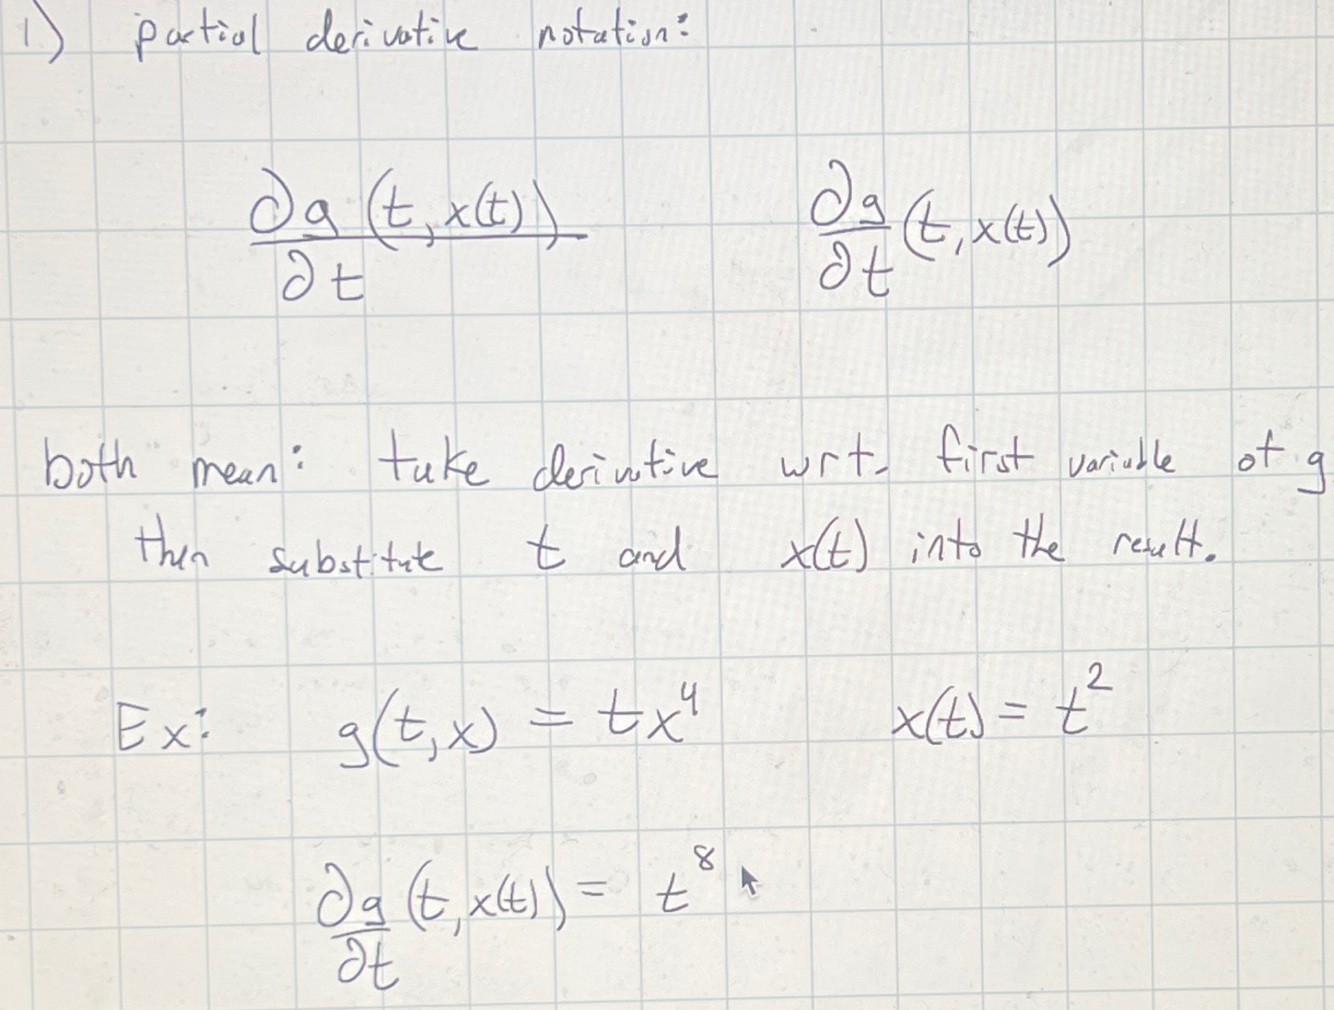 1) partial derivative notation:
∂g(t, x(t))/∂t    ∂g/∂t (t, x(t))
both mean: take derivative wrt. first variable of g
then substitute t and x(t) into the result.
Ex: g(t,x) = tx⁴    x(t) = t²
∂g/∂t (t, x(t)) = t⁸